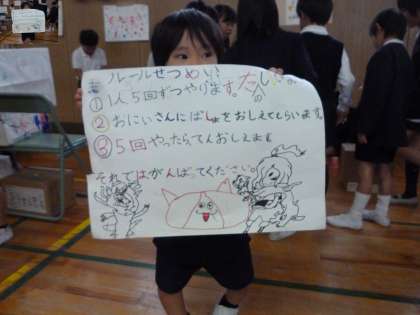 ルールせつめい
①1人5回ずつやります。
②おにいさんにばしょをおしえてもらいます。
③5回やったらてんおしえます
それではがんばってください。